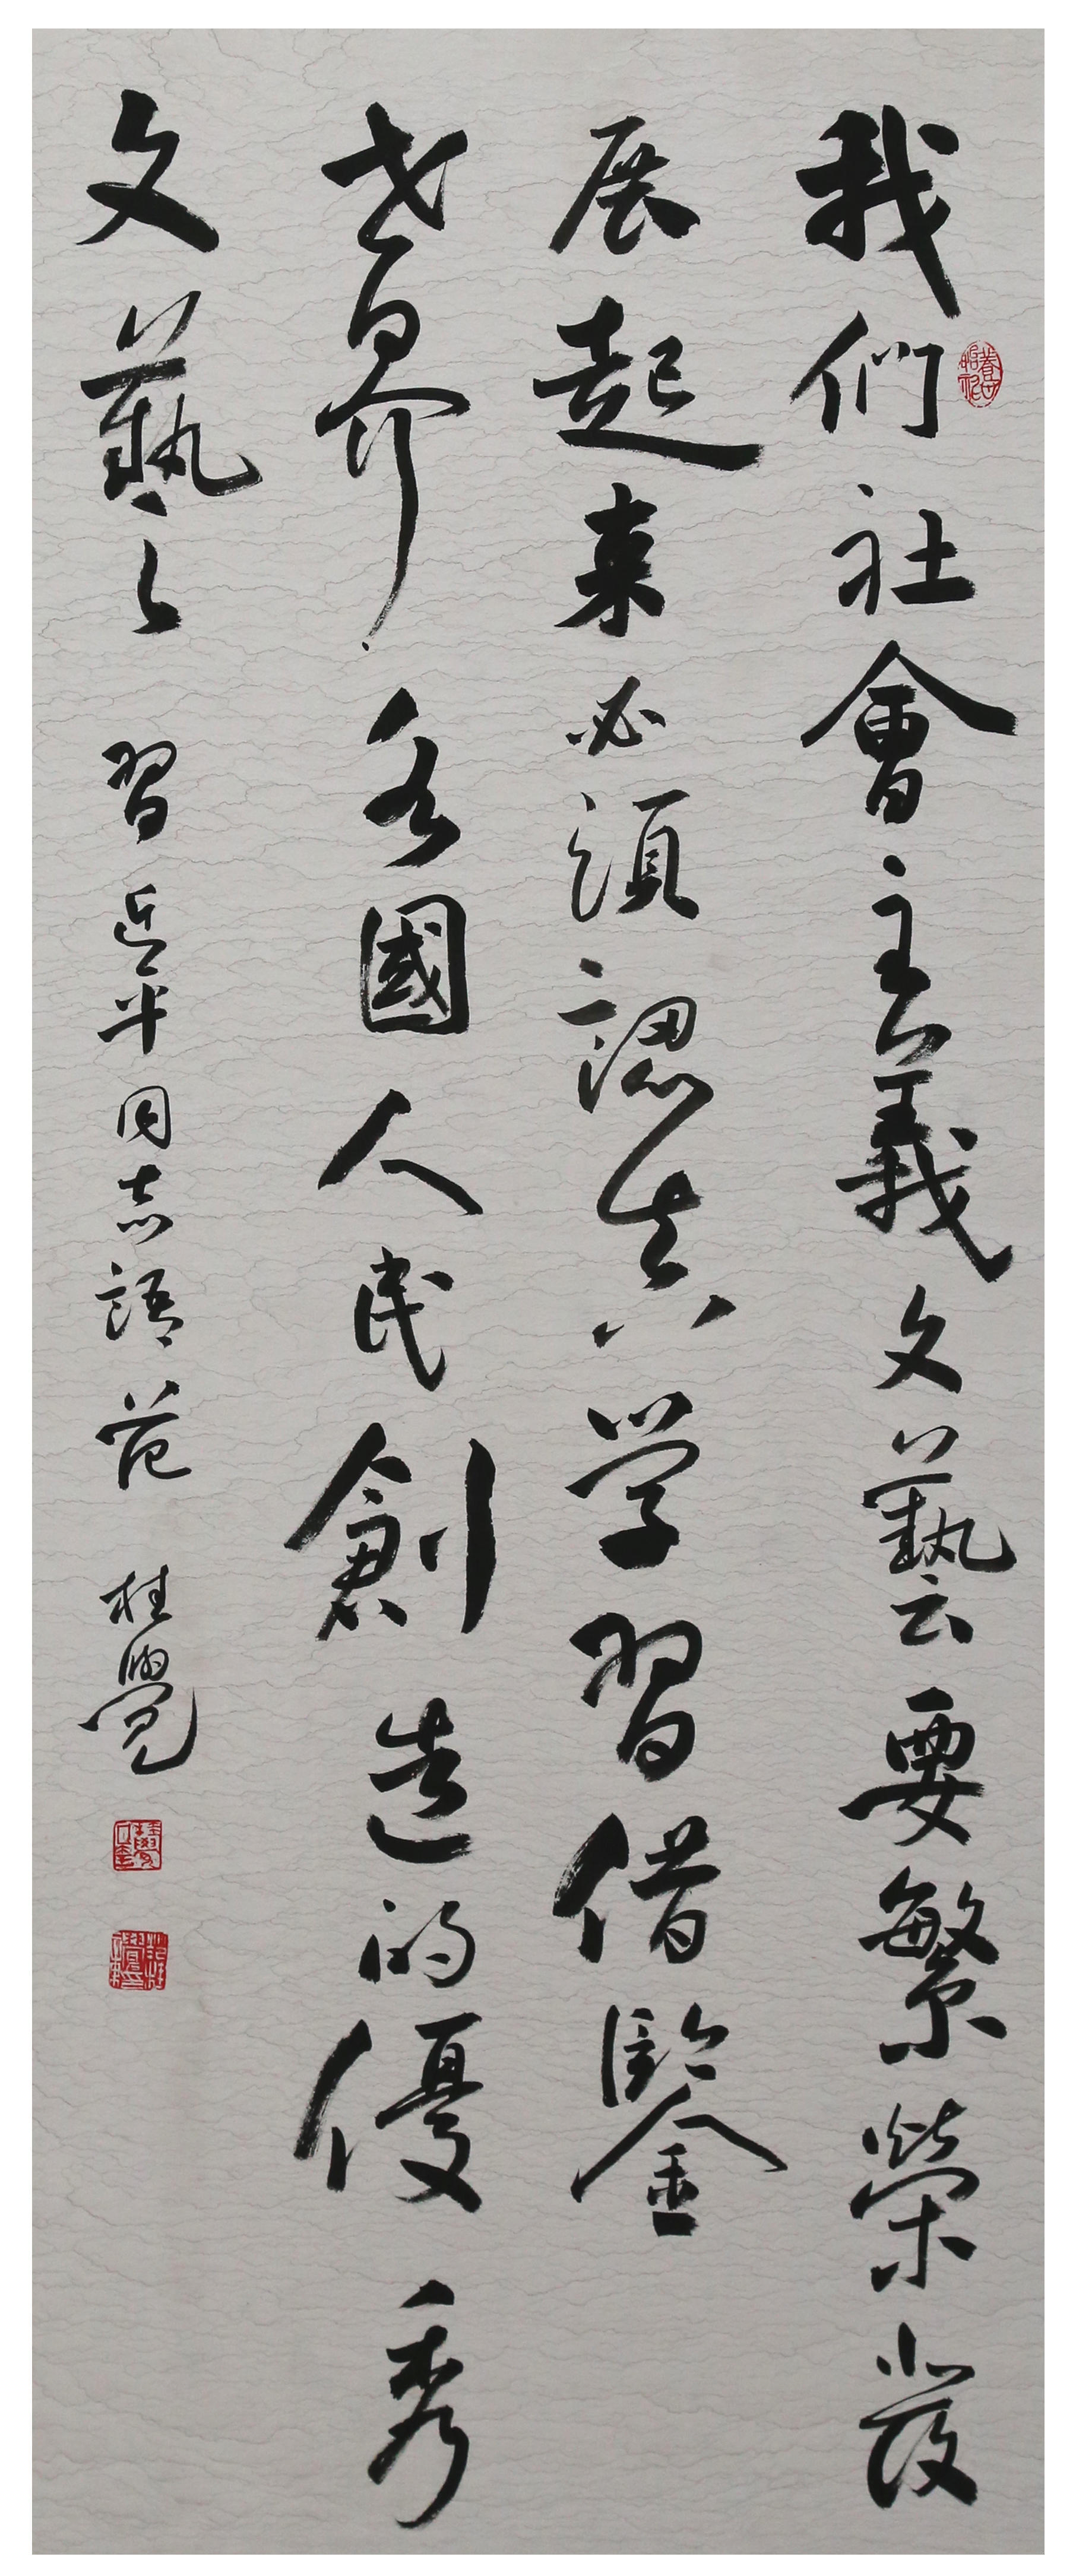 我們社會主義文藝要繁榮發
展起来必須認真学習借鑒
世界各國人民創造的優秀
文藝 習近平同志語 范桂覺